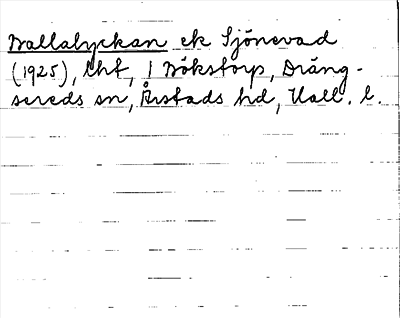 Wallalyckan ek Sjönevad
(1925), lht, 1 Bökstorp, Dräng-
sereds sn, Årstads hd, Hall. l.